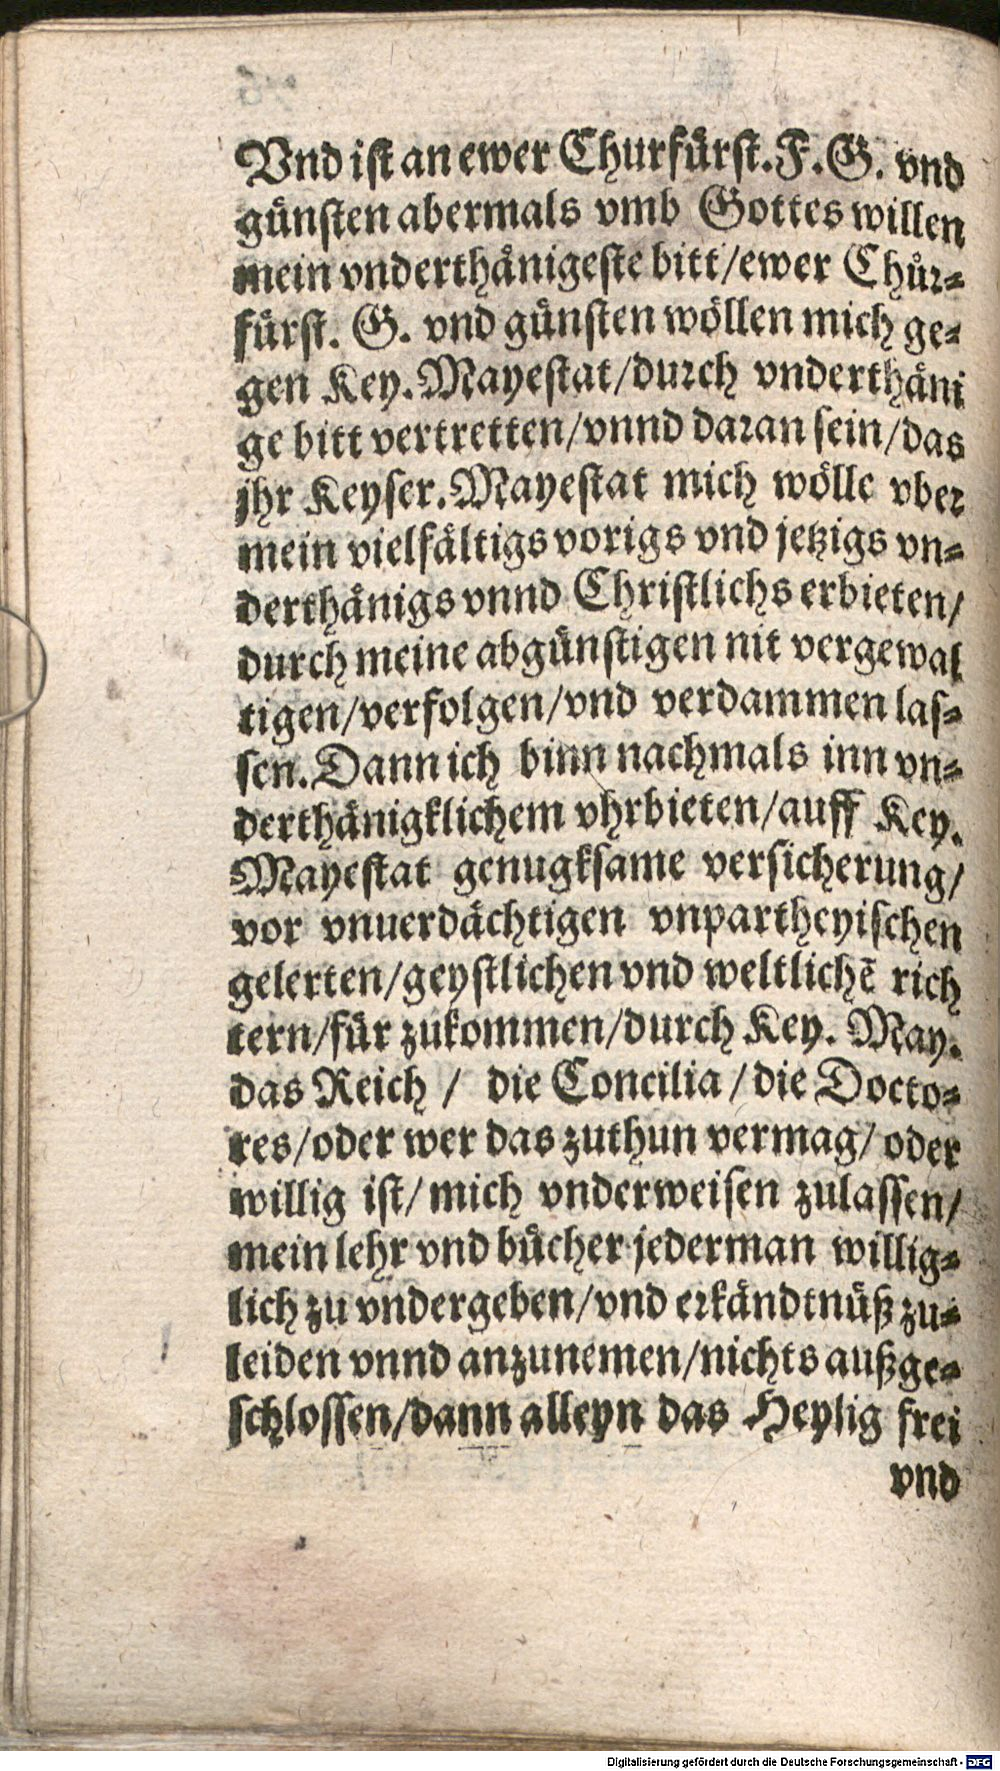 Vnd ist an ewer Churfürst. F. G. vnd
günsten abermals vmb Gottes willen
mein vnderthånigeste bitt/ewer Chůr-
fürst. G. vnd günsten wöllen mich ge-
gen Key. Mayestat/durch vnderthäni
ge bitt vertretten/vnnd daran sein/das
jhr Keyser. Mayestat mich wölle vber
mein vielfältigs vorigs vnd jetzigs vn-
derthånigs vnnd Christlichs erbieten/
durch meine abgünstigen nit vergewal
tigen/verfolgen/vnd verdammen las-
sen. Dann ich binn nachmals inn vn-
derthänigklichem vhrbieten/auff Key.
Mayestat genugksame versicherung/
vor vnuerdächtigen vnpartheyischen
gelerten/geystlichen vnd weltlichē rich
tern/für zukommen/durch Key. May.
das Reich / die Concilia / die Docto-
res/oder wer das zuthun vermag/ oder
willig ist/ mich vnderweisen zulassen/
mein lehr vnd bücher jederman willig-
lich zu vndergeben/vnd erkändtnüß zu-
leiden vnnd anzunemen/nichts außge-
schlossen/dann alleyn das Heylig frei
vnd
Digitalisierung gefördert durch die Deutsche Forschungsgemeinschaft - DFG